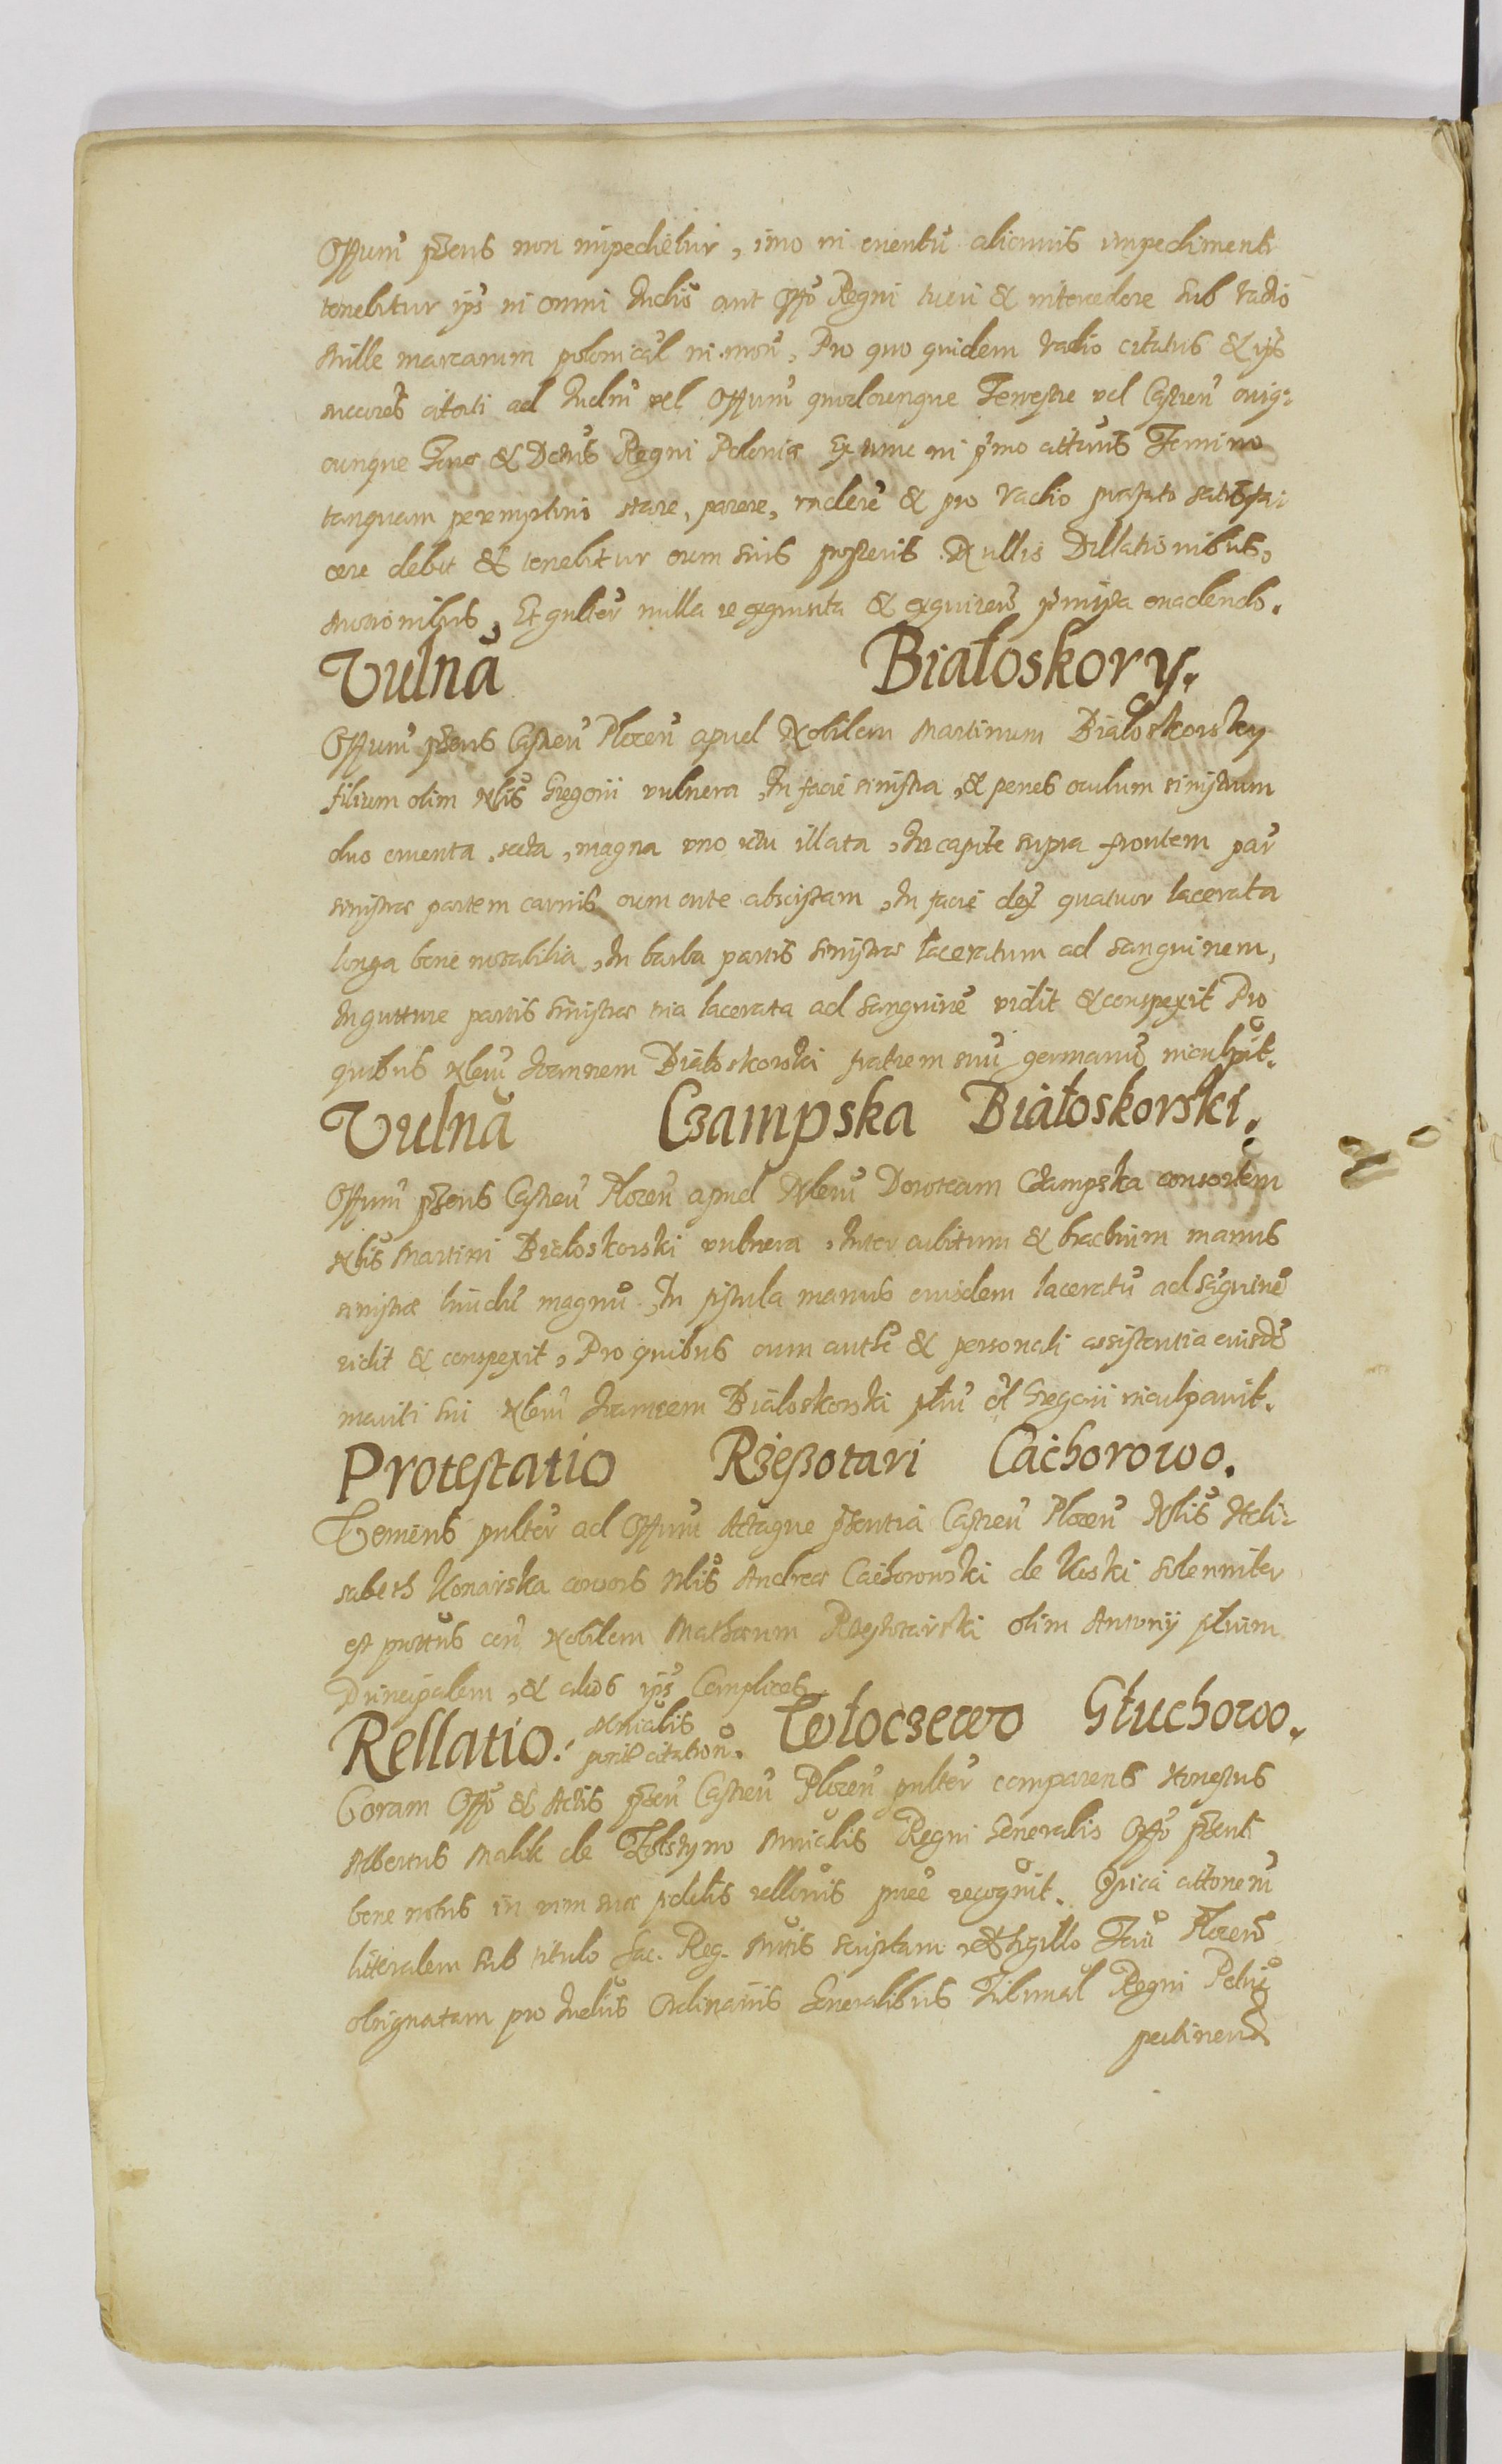 Offum pñens non impedietur, imo in eventu alicuius impedimenti
tenebitur ips in omni Judio aut Offo Regni tueri & intercedere sub vadio
Mille marcarum polonical in mon, Pro quo quidem vadio citatus & ips
succores citati ad Judm vel Offum quodcunque Terrestre vel Castren cuig:
cunque Terræ & Dctus Regni Poloniæ Ex tunc in pmo cittuus Termino
tanquam peremptorio stare, parere, rndere & pro vadio præfato satisfa:
cere debit & tenebitur cum suis posteris Nullis Dillationibus,
Et gnlter nulla re exquisita & exquiren pmissa evadendo.
Vulnã Białoskory.
Offum pñens Castren Plocen apud Nobilem Martinum Białoskorsky
filium olim Nlis Gregorii vulnera, In facie sinistra, & penes oculum sinistrum
duo cruenta, secta, magna uno ictu illata, In capite supra frontem par
sinistræ partem carnis cum cute abscissam, In facie dex quatuor lacerata
longa bene notabilia, In barba partis sinistræ laceratum ad sanguinem,
In gutture partis sinistræ tria lacerata ad sanguinẽ vidit & conspexit Pro
quibus Nlem Joannem Białoskorski fratrem suũ germanũ inculpavit.
Vulnã Czampska Białoskorski.
Offum pñens Castren Plocen apud Nlem Doroteam Czampska consortem
Nlis Martini Białoskorski vulnera, Inter cubitum & brachium manus
sinistræ lividũ magnũ, In fistula manus eiusdem laceratũ ad sãguinẽ
vidit & conspexit, Pro quibus cum auth & personali assistentia eiusdẽ
mariti sui Nlem Joannem Białoskorski filiũ ol Gregorii inculpavit.
Protestatio Rzeszotari Cachorowo.
Veniens pnlter ad Offum Actaque pñentia Castren Plocen Nlis Heli:
sabeth Konarska consors Nlis Andreæ Cachorowski de Koski solenniter
est prottus con Nobilem Mathæum Rzeszotarski olim Antonij filium
Principalem, & alios ips Complices
Rellatio: Mnialis porit citation. Włoczewo Głuchowo.
Coram Offo & Actis pñen Castren Plocen pnlter comparens Honestus
Albertus Malik de Mnialis Regni Generalis Offo pñenti
bene notus in vim suæ fidelis rellonis pnee recognit. Quia cittonem
litteralem sub titulo Sac. Reg. Mttis scriptam, & Sigillo Terr Plocen
obsignatam pro Judiis Ordinariis Generalibus Tribunal Regni Polniæ
pertinen